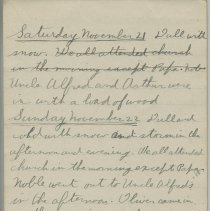 Saturday November 21 Dull with
snow. We all attended church
in the morning except Papa. Noble
Uncle Alfred and Arthur were
in with a load of wood
Sunday November 22 Dull and
cold with snow and storm in the
afternoon and evening. We all attended
church in the morning except Papa
Noble went out to Uncle Alfred's
in the afternoon. Oliver came in